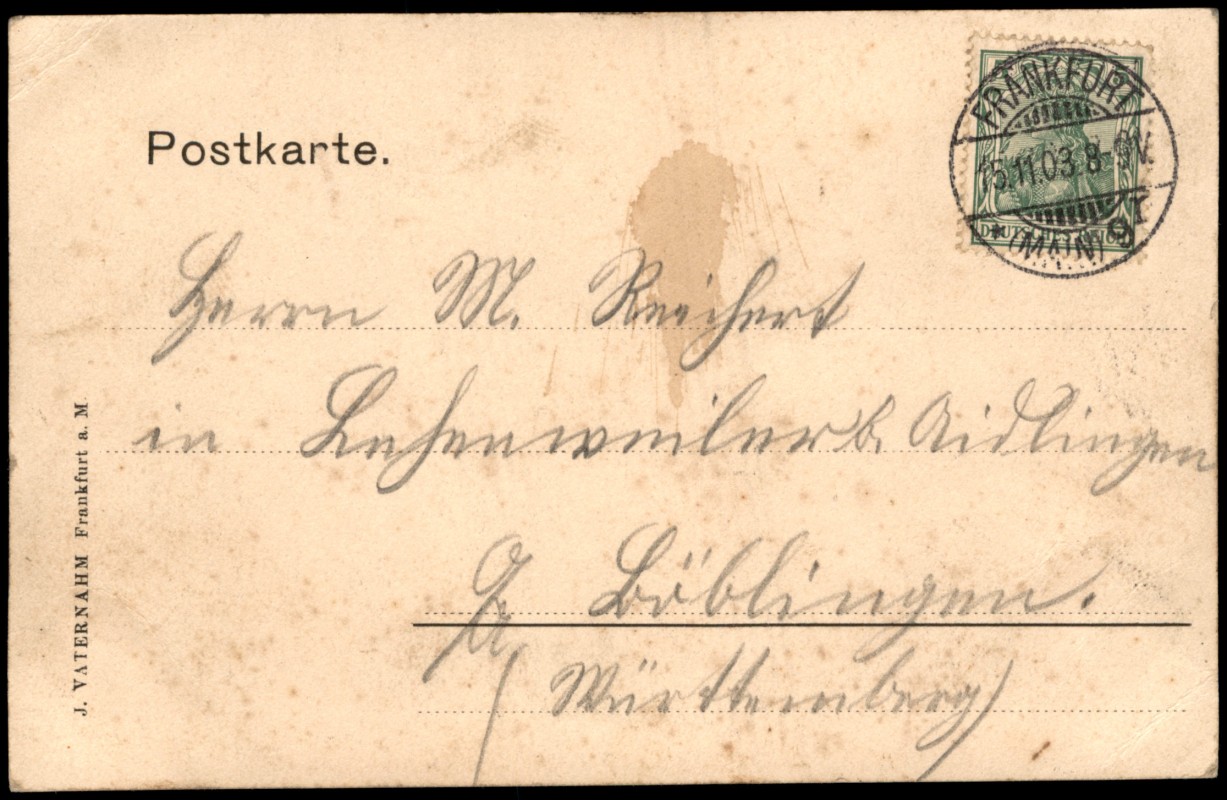 Postkarte.
FRANKFURT
15.11.03.8-9V.
* (MAIN) 9 I
DEUTSCHES REICH
Herrn M. Reichert
in Lehenweiler b. Aidlingen
Böblingen.
(Württemberg)
J. VATERNAHM Frankfurt a. M